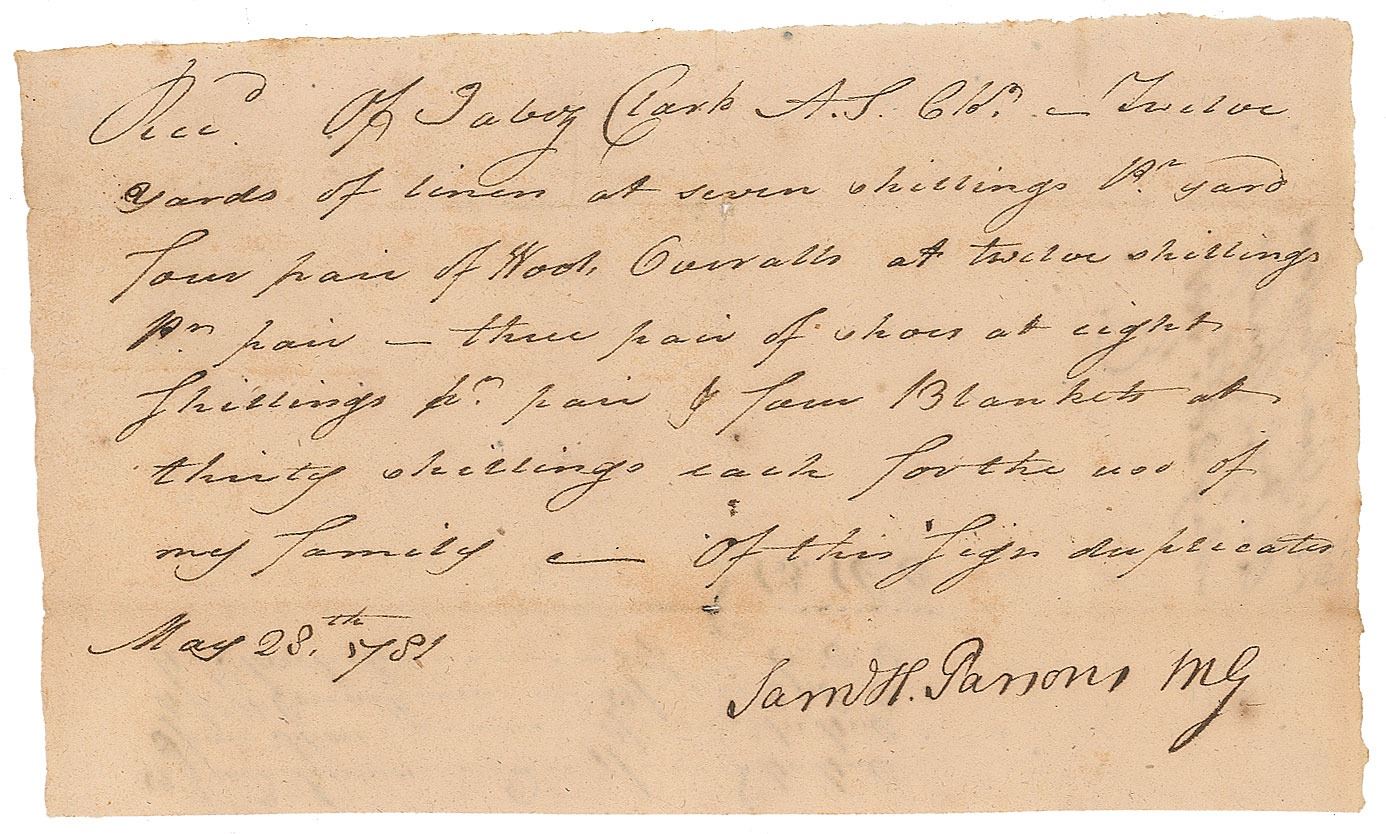 Recd. Of Jabez Clark A.S. Clo. — Twelve
yards of linen at seven shillings Pr. yard
four pair of Wool. Overalls at twelve shillings
Pr. pair — three pair of shoes at eight
shillings pr. pair & four Blankets at
thirty shillings each for the use of
my family — Of this Sign duplicates
May 28.th 1781
Saml H. Parsons MG